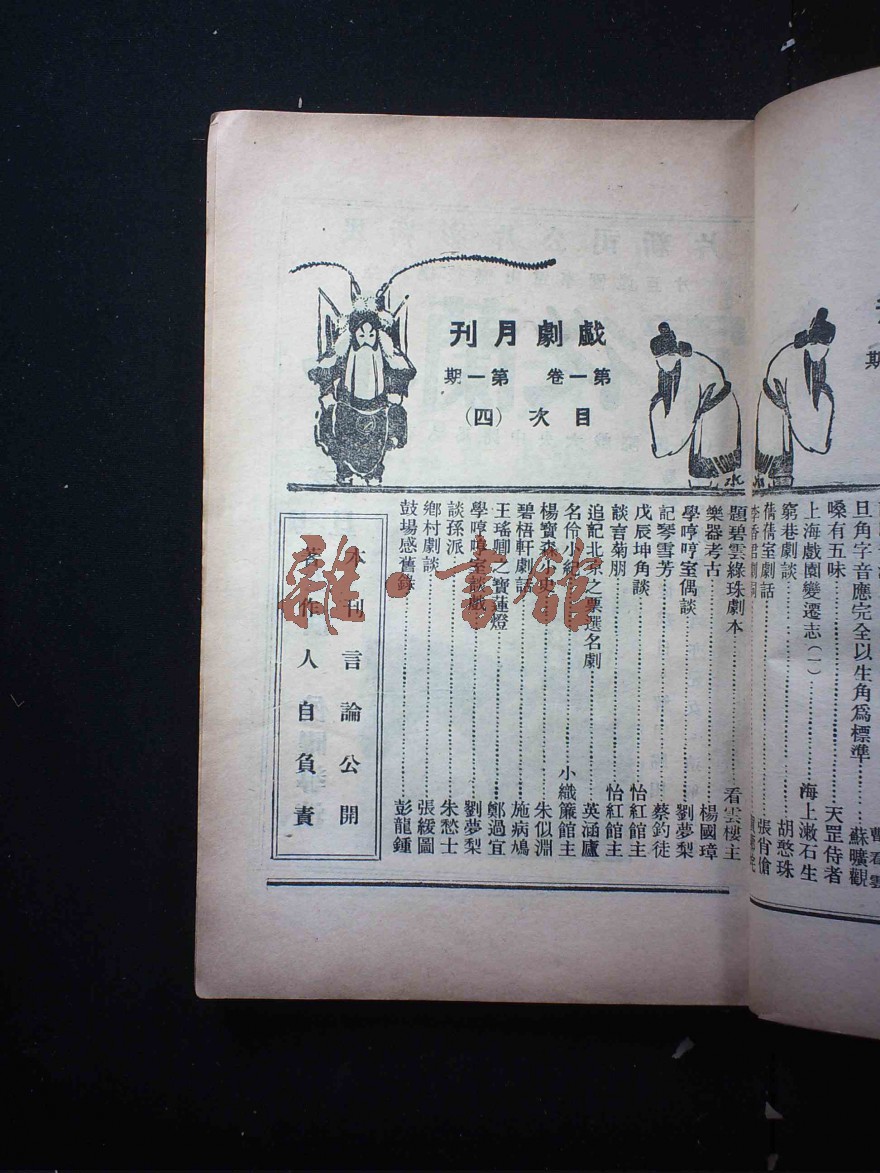 戲劇月刊
第一卷 第一期
目次(四)
題碧雲綠珠劇本……看雲樓主
樂器考古……楊國璋
學哼哼室偶談……劉夢梨
記琴雪芳……蔡釣徒
戊辰坤角談……怡紅館主
談言菊朋……怡紅館主
追記北京之票選名劇……英涵廬
名伶小紀……小織簾館主
楊寶森小史……朱似淵
碧梧軒劇話……施病鳩
王瑤卿之寶蓮燈……鄭過宜
學哼哼室談戲……劉夢梨
談孫派……朱愁士
鄉村劇談……張緩圖
鼓場感舊錄……彭龍鍾
本刊言論公開
著作人自負責
雜·書館
期
旦角字音應完全以生角爲標準……蘇曠觀
嗓有五味……天罡侍者
上海戲園變遷志(一)……海上漱石生
窮巷劇談……胡憨珠
倩倩室劇話……張肖傖